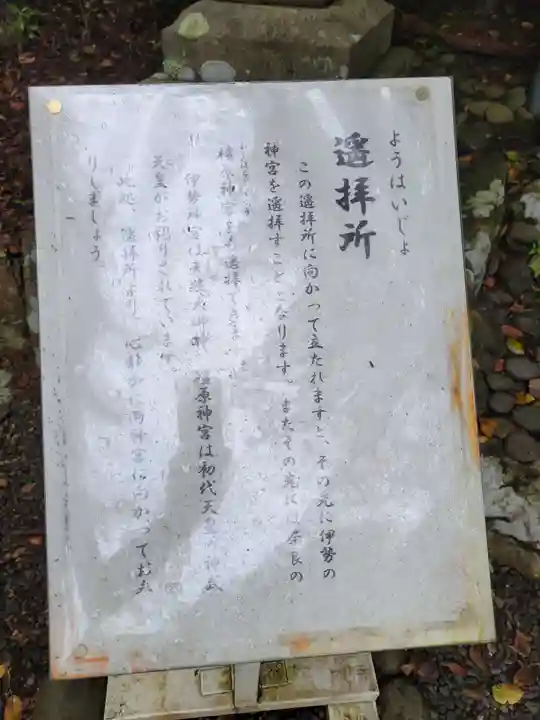 ようはいじょ
遥拝所
この遥拝所に向かって立たれますと、その先に伊勢の
神宮を遥拝することになります。またその先には奈良の
橿原神宮をも遥拝できます
伊勢神宮は天照大御神、橿原神宮は初代天皇の神武
天皇がお祀りされています。
此処、遥拝所より、心静かに両神宮に向かってお参
りしましょう。